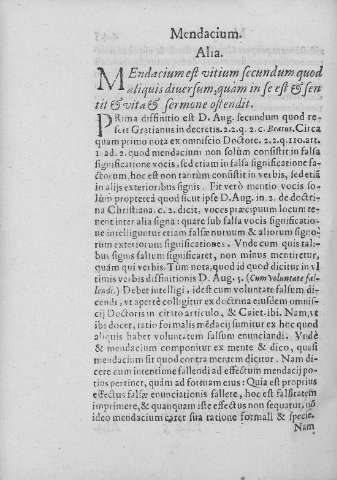 Mendacium.
Alia.
MEndacium est vitium secundum quod
aliquis diversum, quàm in se est & sen
tit & vita & sermone ostendit.
PRima diffinitio est D. Aug. secundum quod re-
fert Gratianus in decretis. 2.2.q. 2. c. Beatus. Circa
quam primo nota ex omniscio Doctore. 2.2.q.110.art.
1. ad 2. quod mendacium non solùm consistit in falsa
significatione vocis, sed etiam in falsa significatione fa-
ctorum, hoc est non tantùm consistit in verbis, sed etiã
in alijs exterioribus signis. Fit verò mentio vocis so-
lùm propterea quod sicut ipse D. Aug. in 2. de doctri-
na Christiana. c. 2. dicit, voces præcipuum locum te-
nent inter alia signa: quare sub falsa vocis significatio-
ne intelliguntur etiam falsæ nutuum & aliorum signo-
rum exteriorum significationes. Vnde cum quis tali-
bus signis falsum significaret, non minus mentiretur,
quàm qui verbis. Tùm nota, quod id quod dicitur in vl
timis verbis diffinitionis D. Aug. s. (Cum voluntate fal-
lendi.) Debet intelligi, id est cum voluntate falsum di-
cendi, vt apertè colligitur ex doctrina eiusdem omnis-
cij Doctoris in citato articulo, & Caiet. ibi. Nam, vt
ibs docet, ratio formalis mẽdacij sumitur ex hoc quod
aliquis habet voluntatem falsum enunciandi. Vndè
& mendacium componitur ex mente & dico, quasi
mendacium sit quod contra mentem dicitur. Nam di-
cere cum intentione fallendi ad effectum mendacij po-
tius pertinet, quàm ad formam eius: Quia est proprius
effectus falsæ enunciationis fallere, hoc est falsitatem
imprimere, & quanquam iste effectus non sequatur, nõ
ideo mendacium caret sua ratione formali & specie.
Nam